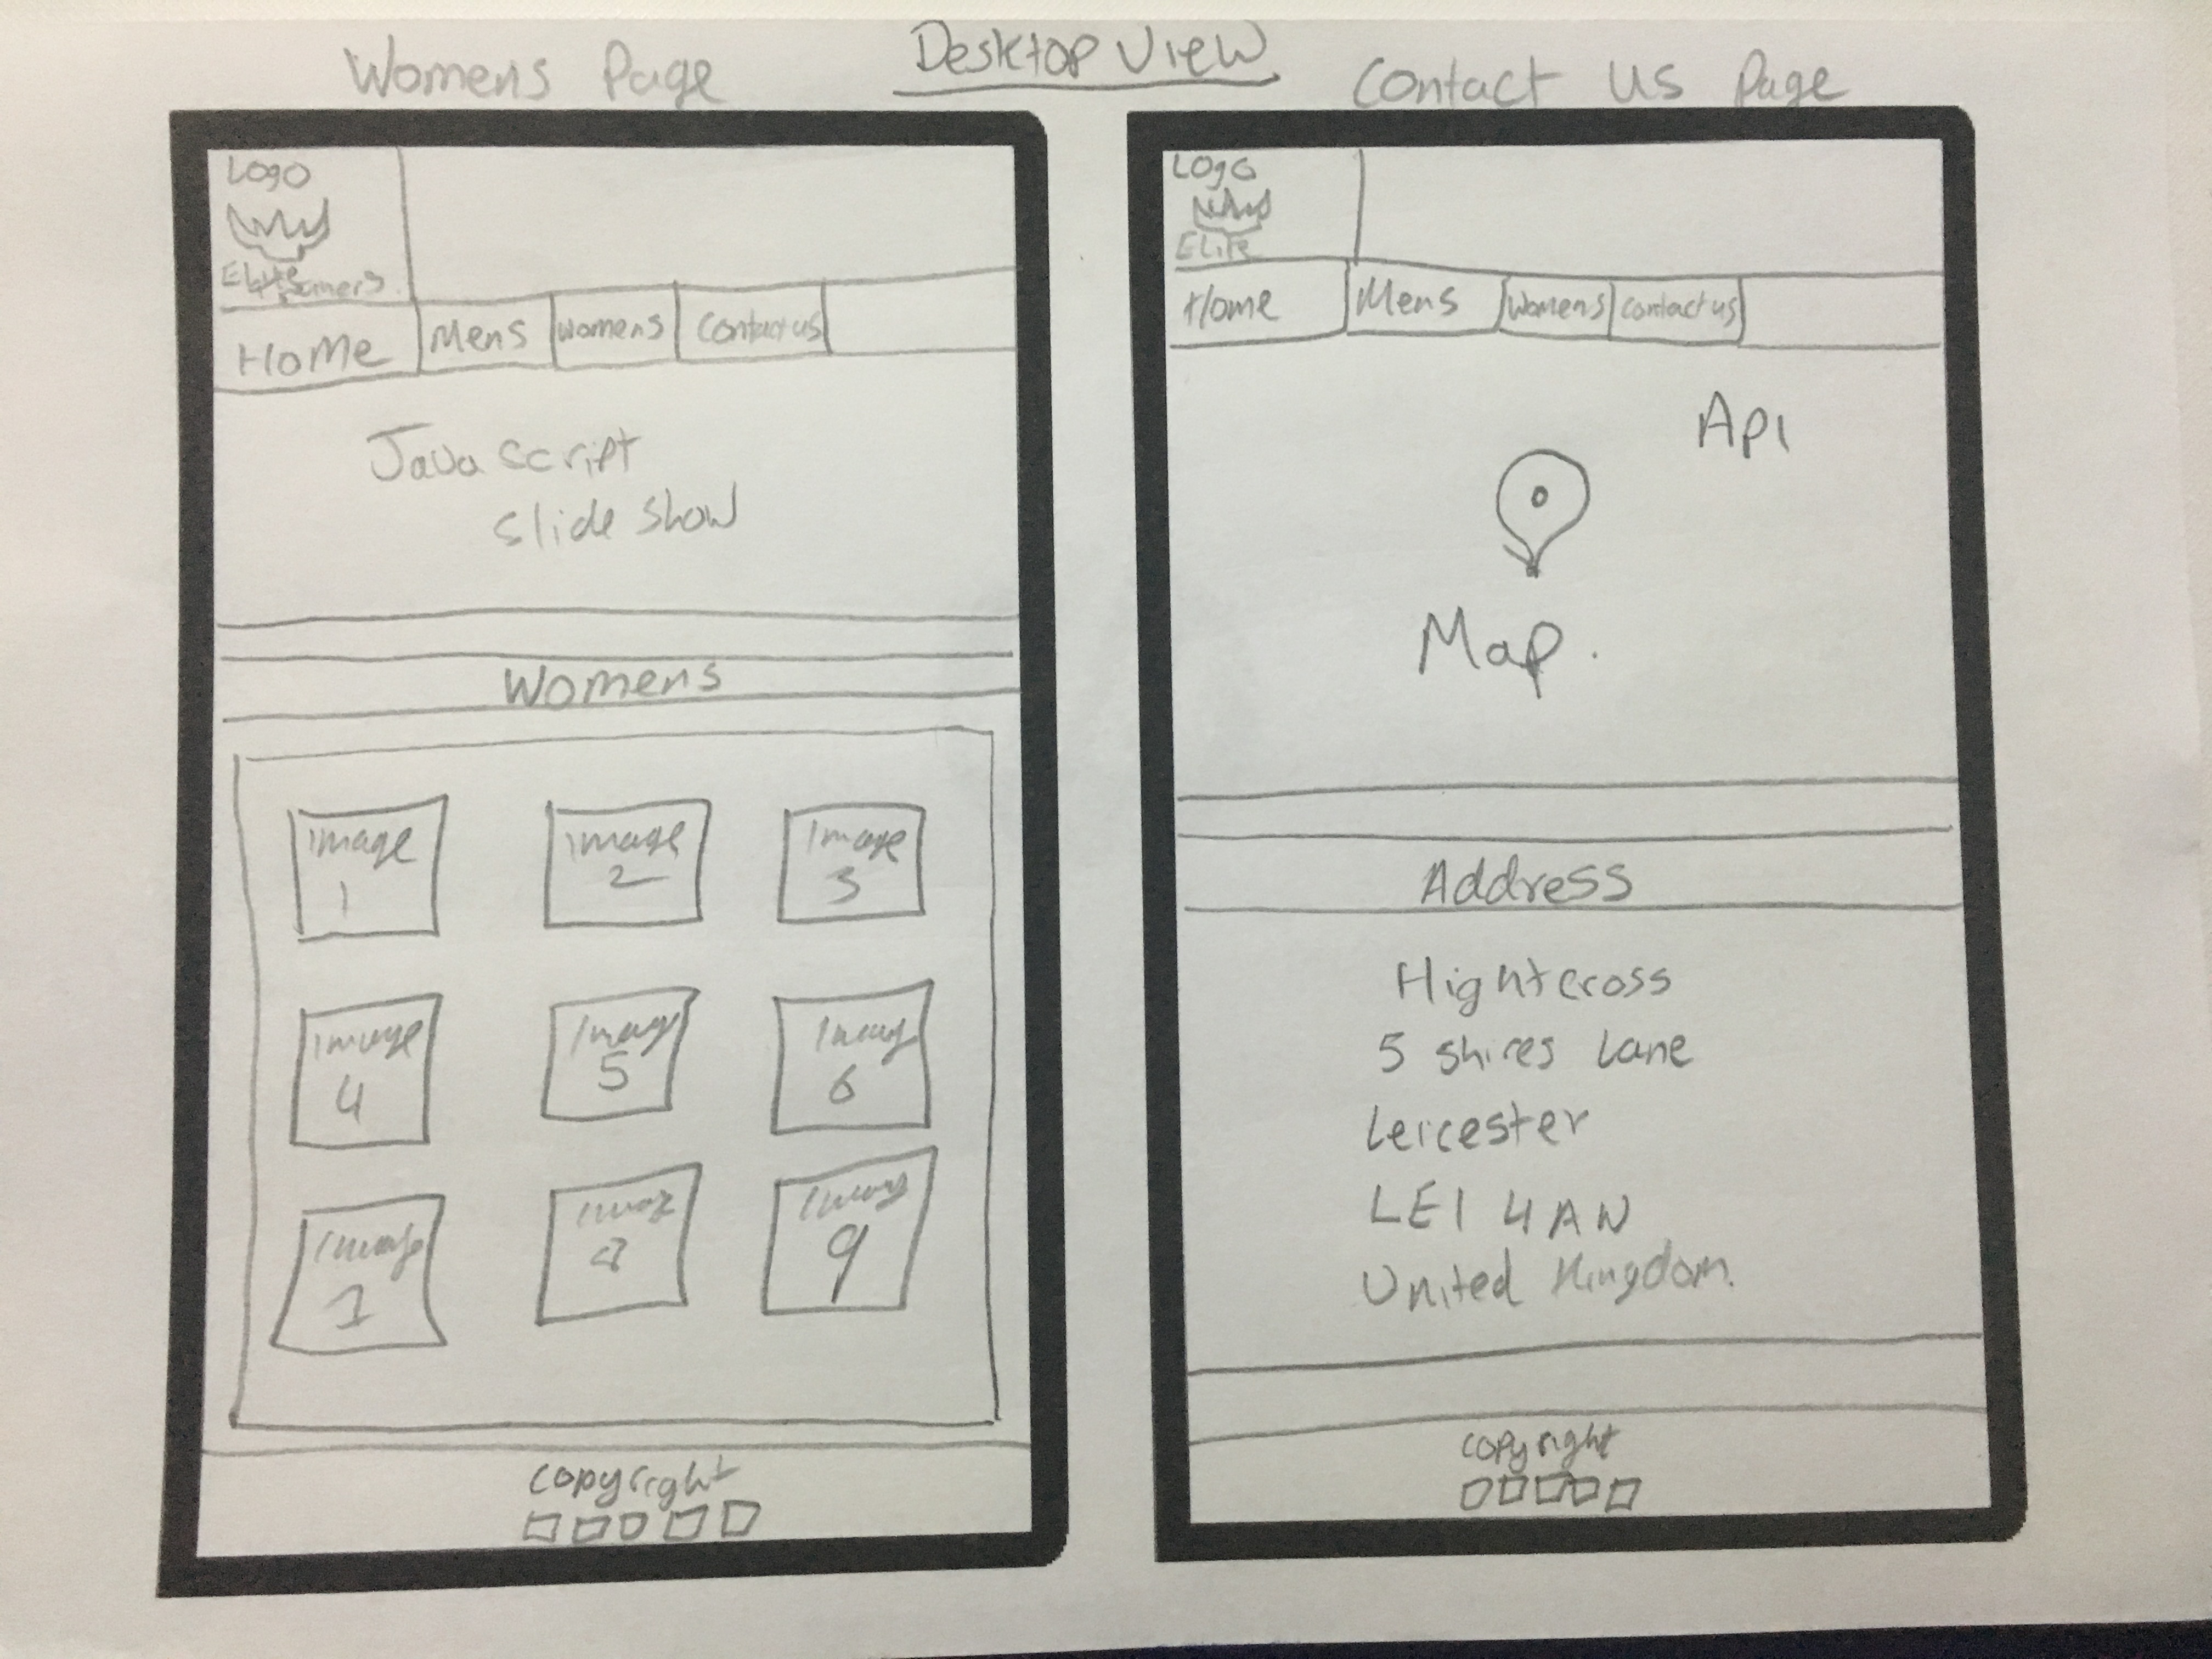 Desktop View
Womens Page
Logo
Elite
HoMe
Mens
Womens
Contact us
Java script
slide show
Womens
image
1
image
2
image
3
image
4
image
5
6
9
Copyright
Contact Us Page
Logo
Elite
Home
Mens
Womens
Contact us
Api
Map.
Address
Hightcross
5 shires Lane
Leicester
LE1 4AN
United Kingdom.
Copyright